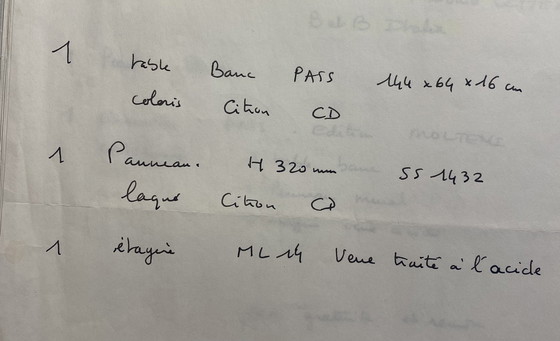 1 table Banc PASS 144 x 64 x 16 cm
coloris Citron CD
1 Panneau. H 320 mm SS 1432
laqué Citron CD
1 étagère ML 14 Verre traité à l'acide